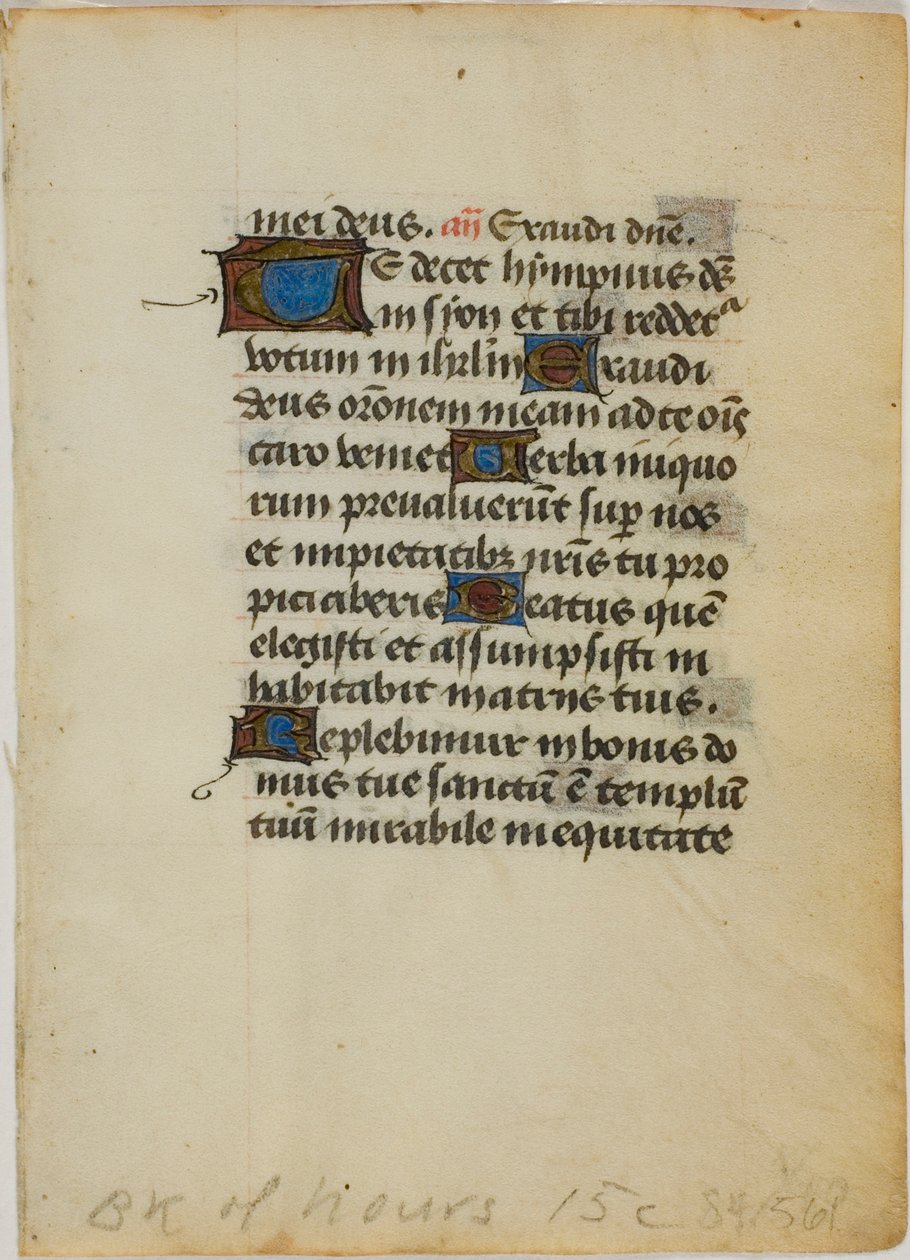 mei deus. an̄ Exaudi dn̄e.
TE decet hẏmpnus ds̄
in sẏon et tibi reddetᵃ
votum in ihrl'm Exaudi
deus orōnem meam ad te oīs
caro veniet Verba iniquo
rum preualuerūt sup̱ nos
et impietatibꝫ nrīs tu pro
piciaberis Beatus quē
elegisti et assumpsisti in
habitabit in atriis tuis.
Replebimur in bonis do
mus tue sanctū ē templū
tuū mirabile in equitate
BK of hours 15c